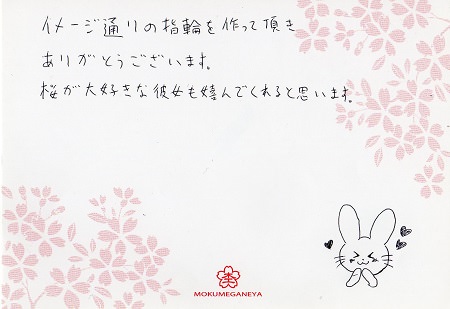 イメージ通りの指輪を作って頂き
ありがとうございます。
桜が大好きな彼女も嬉んでくれると思います。
MOKUMEGANEYA